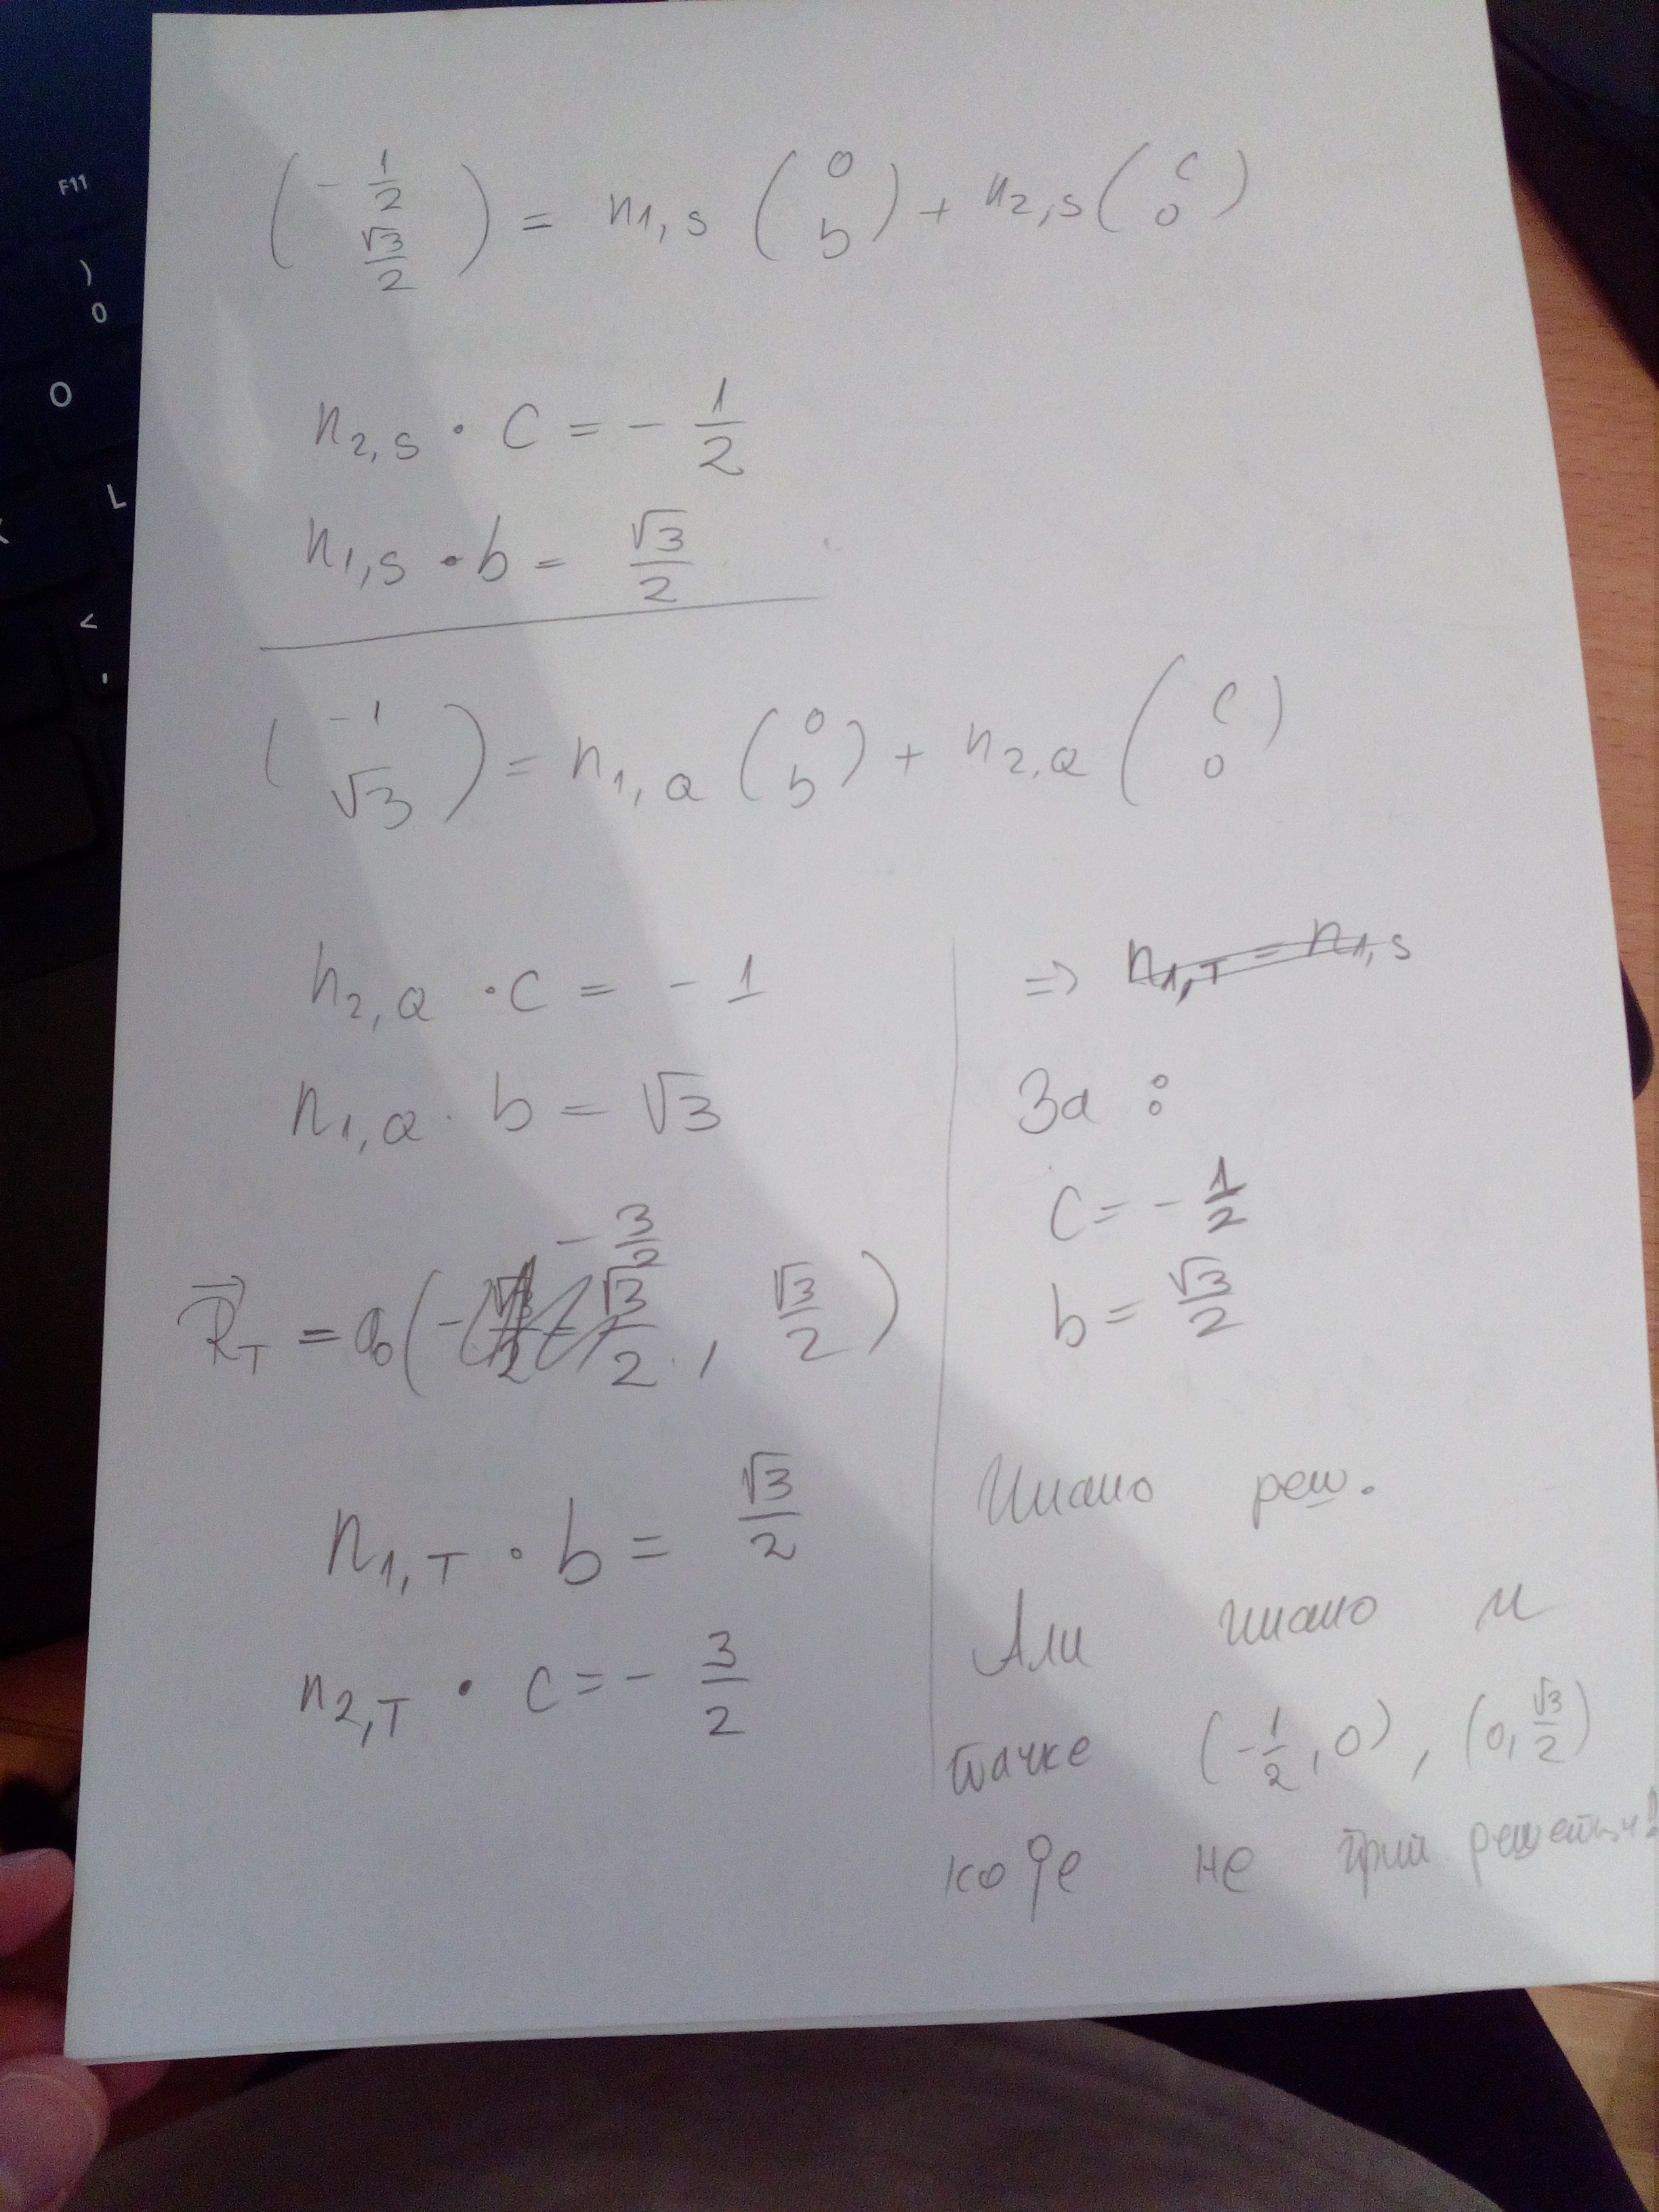 F11
)
0
O
L
<
,
(-1/2, √3/2) = n1,s (0, b) + n2,s (c, 0)
n2,s · c = - 1/2
n1,s · b = √3/2
(-1, √3) = n1,Q (0, b) + n2,Q (c, 0)
n2,Q · c = - 1
n1,Q · b = √3
R⃗T = a0 ( - 3/2 , √3/2 )
n1,T · b = √3/2
n2,T · c = - 3/2
=> n1,T = n1,s
За :
c = - 1/2
b = √3/2
Имамо реш.
Али имамо и
тачке (-1/2, 0), (0, √3/2)
које не